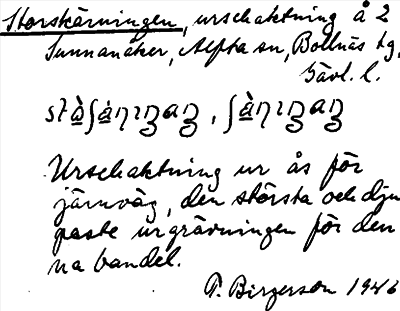 Storskärningen, urschaktning å 2
Sunnanåker, Alfta sn, Bollnäs tg,
Gävl. l.
Urschaktning ur ås för
järnväg, den största och dju
paste urgrävningen för den
na bandel.
P. Birgerson 1946